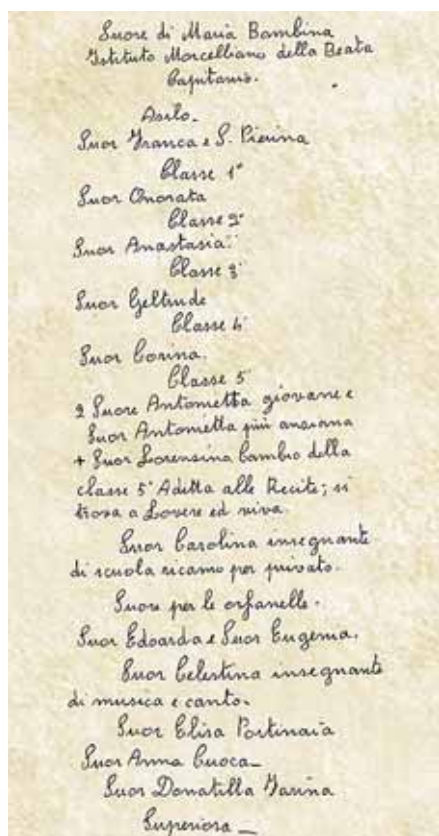 Suore di Maria Bambina
Istituto Morcelliano della Beata
Capitanio.
Asilo.
Suor Franca e S. Pierina
Classe 1ª
Suor Onorata
Classe 2ª
Suor Anastasia
Classe 3ª
Suor Geltrude
Classe 4ª
Suor Corina.
Classe 5ª
2 Suore Antonietta giovane e
Suor Antonietta più anziana
+ Suor Lorensina cambio della
classe 5ª Adetta alle Recite; si
trova a Lovere ed viva.
Suor Carolina insegnante
di scuola ricamo per privato.
Suore per le orfanelle.
Suor Edoarda e Suor Eugenia.
Suor Celestina insegnante
di musica e canto.
Suor Elisa Portinaia
Suor Anna Cuoca
Suor Donatilla Farina
Superiora